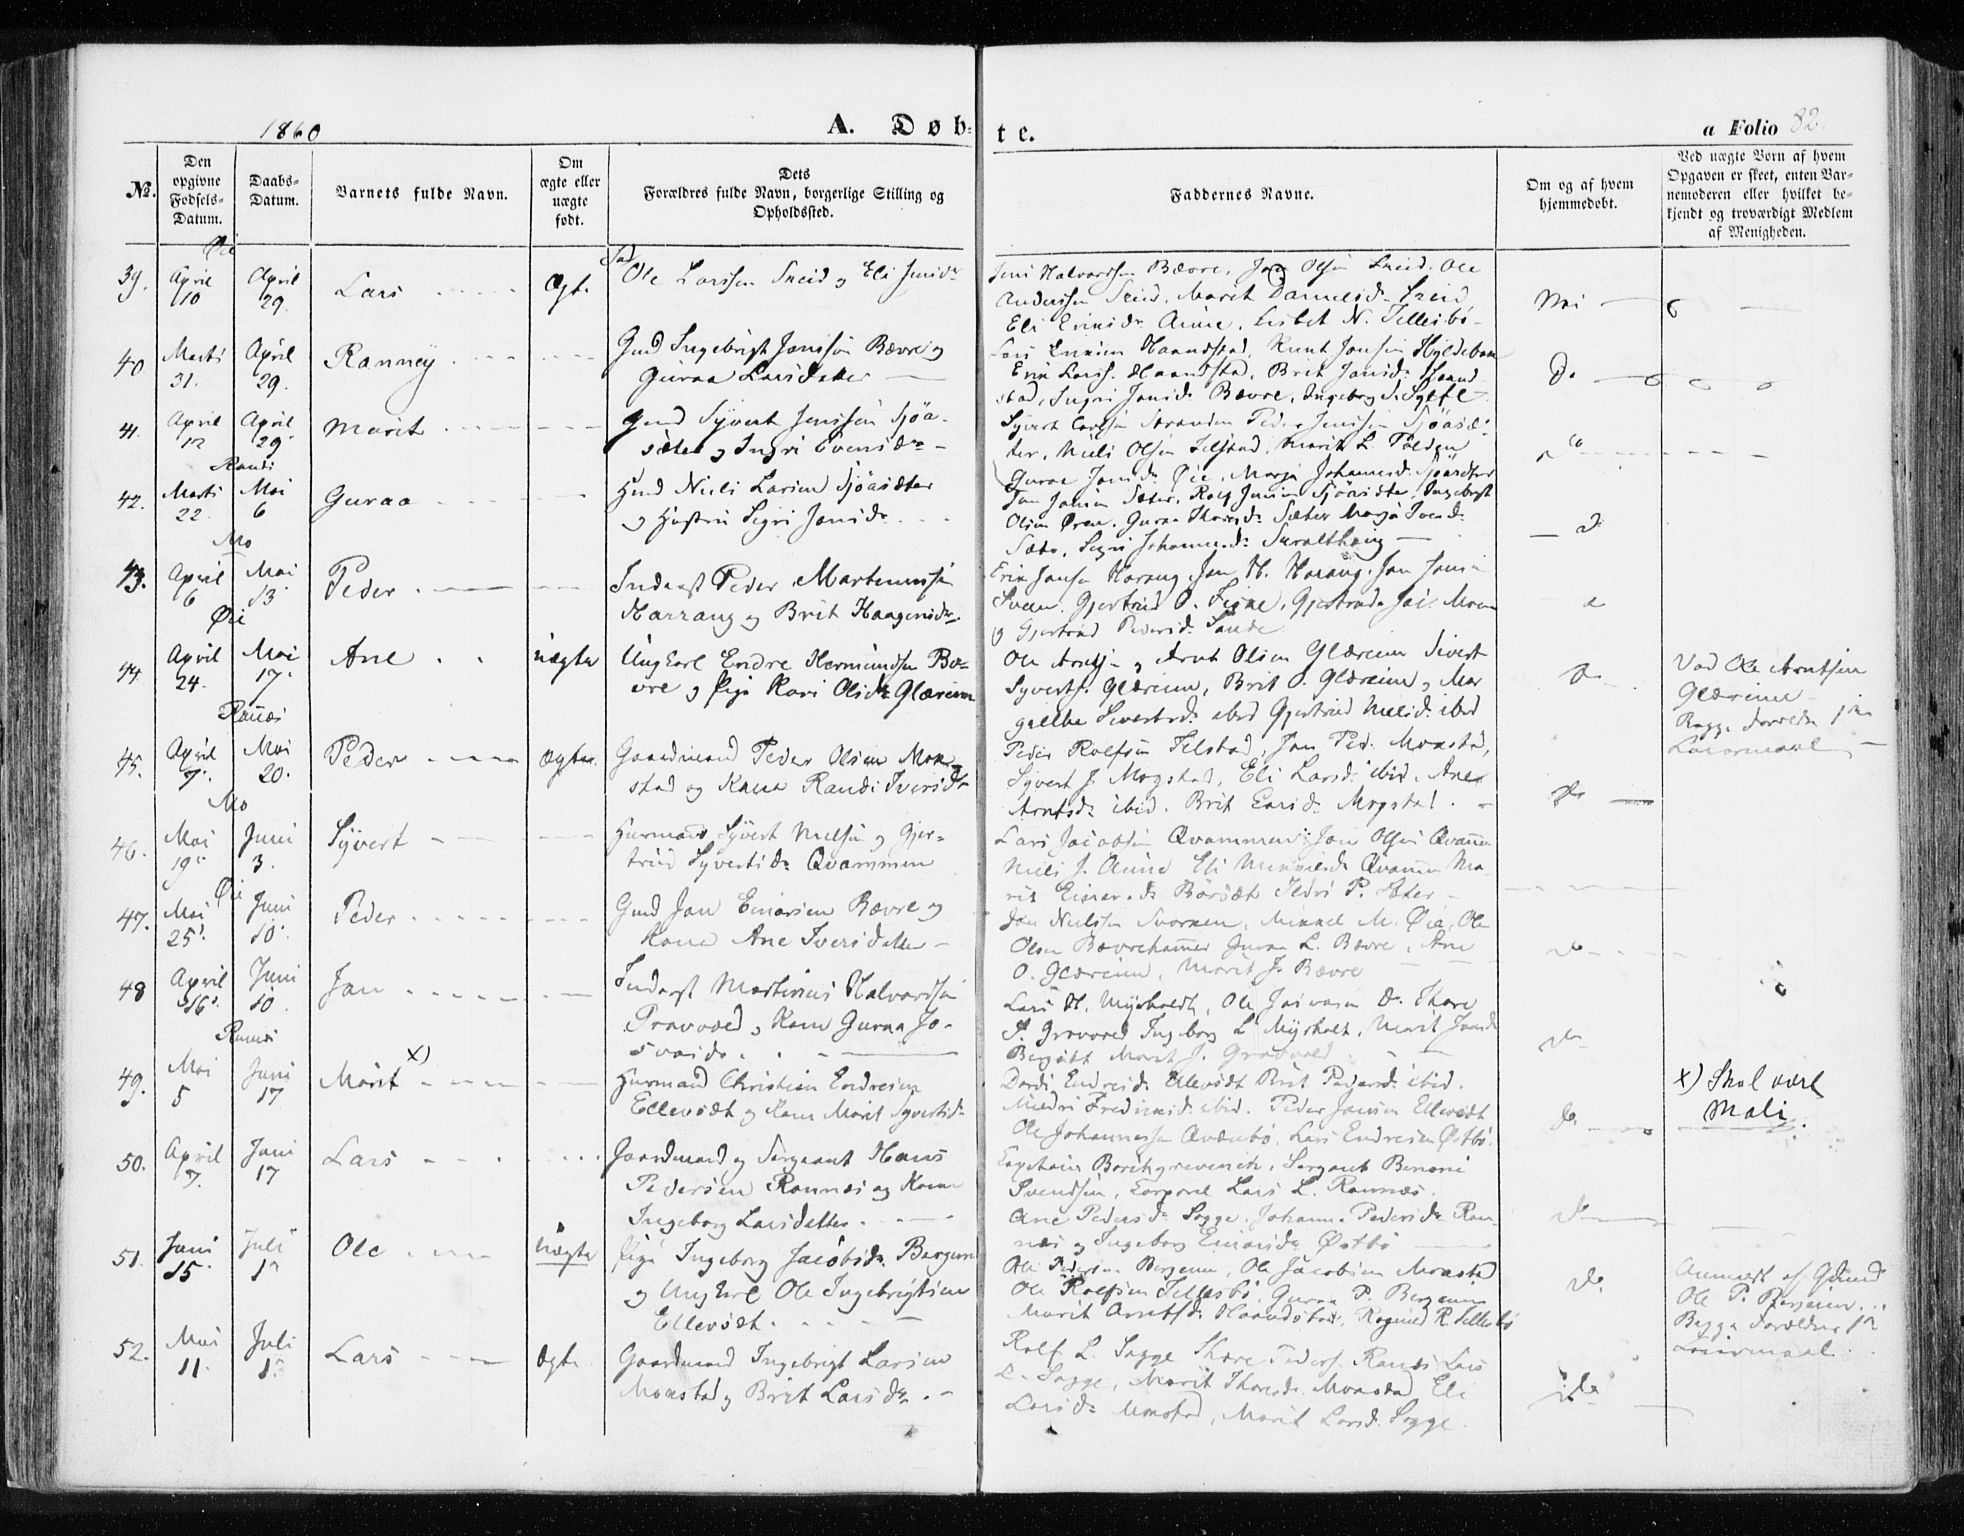 1860
A. Døb-
te.
a Folio 82.
No.
Den opgivne Fødsels-Datum.
Daabs-Datum.
Barnets fulde Navn.
Om ægte eller uægte født.
Dets Forældres fulde Navn, borgerlige Stilling og Opholdssted.
Faddernes Navne.
Om og af hvem hjemmedøbt.
Ved uægte Børn af hvem Opgaven er skeet, enten Barnemoderen eller hvilket bekjendt og troværdigt Medlem af Menigheden.
Øie
39. April 10 April 29. Lars Ægte
Ole Larssen Sneid og Eli Jensdr
Jens Halvorsen Bævre, Jon Olsen Sneid, Ole
Anderssen Sneid, Marit Danielsdr Sneid,
Eli Eriksdr Aune, Lisbet N. Tellesbø
Nei
40 Marts 31. April 29. Ranney
Gmd Ingebrigt Jonssøn Bævre og
Guraa Larsdatter
Lars Haandstad, Knut Jonsen
Erik Larss. Haandstad, Brit Jonsdr Haand
stad, Ingri Jonsdr Bævre, Ingeborg S.
Do
41. April 12 April 29 Marit
Gmd Syvert Jenssen Sjöa-
sæter og Ingri Evensdr
Syvert Peder Jenssen Sjöasæ-
ter, Niels Olsen Telstad, Marit L.
Guraa Jonsdr Øie, Marja Johannesd. Sjöasæter
Ranæs
42. Marts 22. Mai 6 Guraa
Hmd Niels Larsen Sjöasæter
og Hustru Sigri Jonsdr
Jon Jonsen Sæter, Rolf Jonsen Sjöasæter, Ingebrigt
Olsen Øren, Guraa Thoresdr Sæter Marja Iversdr
Sæbø, Sigri Johannesdr
Mo
43. April 6 Mai 13 Peder
Inderst Peder Martinussen
Harrang og Brit Haagensdr.
Erik Jonsen Harang, Jon H. Harang, Jon Jonsen
Sveen, Gjertrud O. Fiske, Gjertrud Moen
og Gjertrud Pedersdr Sande
Øie
44. April 24. Mai 17. Ane uægte
Ungkarl Endre Hermundsen Bæ-
vre og Pige Kari Olsdr Glæreim
Ole Arntsen og Arnt Olsen Glæreim Sivert
Syvertss. Glæreim, Brit O. Glæreim og Mar
grethe Sivertsdr ibid Gjertrud Nielsdr ibid
Do
Ved Ole Arntsen
Glæreim
Begge Forældr 1ste
Leiermaal
Ranæs
45. April 7. Mai 20. Peder ægte
Gaardmand Peder Olsen Mo-
stad og Kone Randi Iversdr
Peder Rolfsen Telstad, Jon Ped. Moastad,
Syvert J. Mogstad, Eli Larsd. ibid, Ane
Arntsdr ibid. Brit Larsdr Mogstad.
Do
Mo
46. Mai 19. Juni 3. Syvert
Huusmand Syvert Nielsen og Gjer-
trud Syvertsdr Qvammen
Lars Jacobsen Qvammen, Jon Olsen Qvammen
Niels J. Aune Eli Qvammen Ma-
rit Einarsdr Børsæt Ildri P. Sæter
Øie
47. Mai 25. Juni 10. Peder
Gmd Jon Einarsen Bævre og
Kone Ane Iversdatter
Jon Nielssen Svorken, Mikkel M. Øie, Ole
Olsen Bævrehammer Guraa L. Bævre, Ane
O. Glæreim, Marit J. Bævre
Do
48 April 16. Juni 10. Jon
Inderst Martinus Halvorsen
Gravvold og Kone Guraa Jo-
svasdr
Lars H. Myrholdt, Ole Josvasen Do Thore
P. Gravvold Ingeborg L. Myrholt, Marit Jonsdr
Marit J. Gravvold
Do
Ranæs
49. Mai 5 Juni 17 Marit x)
Huusmand Christian Endresen
Ellevsæt og Kone Marit Syvertsdr
Dordi Endresdr Ellevsæt Brit Pedersdr ibid.
Ildri Fredriksdr ibid. Peder Jonsen Ellevsæt
Ole Johannessen Qvænbø, Lars Endresen Østbø.
Do
x) Skal være
Mali.
50. April 7. Juni 17 Lars
Gaardmand og Sergeant Hans
Pedersen Ranæs og Kone
Ingeborg Larsdatter
Capitain Borchgrevinck, Sergeant Benoni
Svendsen, Corporal Lars L. Rannæs.
Ane Pedersdr Sogge, Johanna Pedersdr Ran-
næs og Ingeborg Einarsdr Østbø
Do
51. Juni 15. Juli 1 Ole uægte
Pige Ingeborg Jacobsdr Bergem
og Ungkarl Ole Ingebrigtsen
Ellevsæt.
Ole Pedersen Bergem, Ole Jacobsen Moastad
Ole Rolfsen Tellesbø, Guraa P. Bergem
Marit Arntsdr Haandstad, Ragnild R. Tellesbø
Do.
Anmeldt af Gmd
Ole P. Bergem
Begge Forældres 1ste
Leiermaal.
52. Mai 11. Juli 1 Lars Ægte
Gaardmand Ingebrigt Larsen
Moastad og Brit Larsdr.
Rolf L. Sogge Thore Peders. Ranæs Lars
L. Sogge, Marit Thoresdr Moastad, Eli
Larsdr Moastad, Marit Larsd. Sogge.
Do